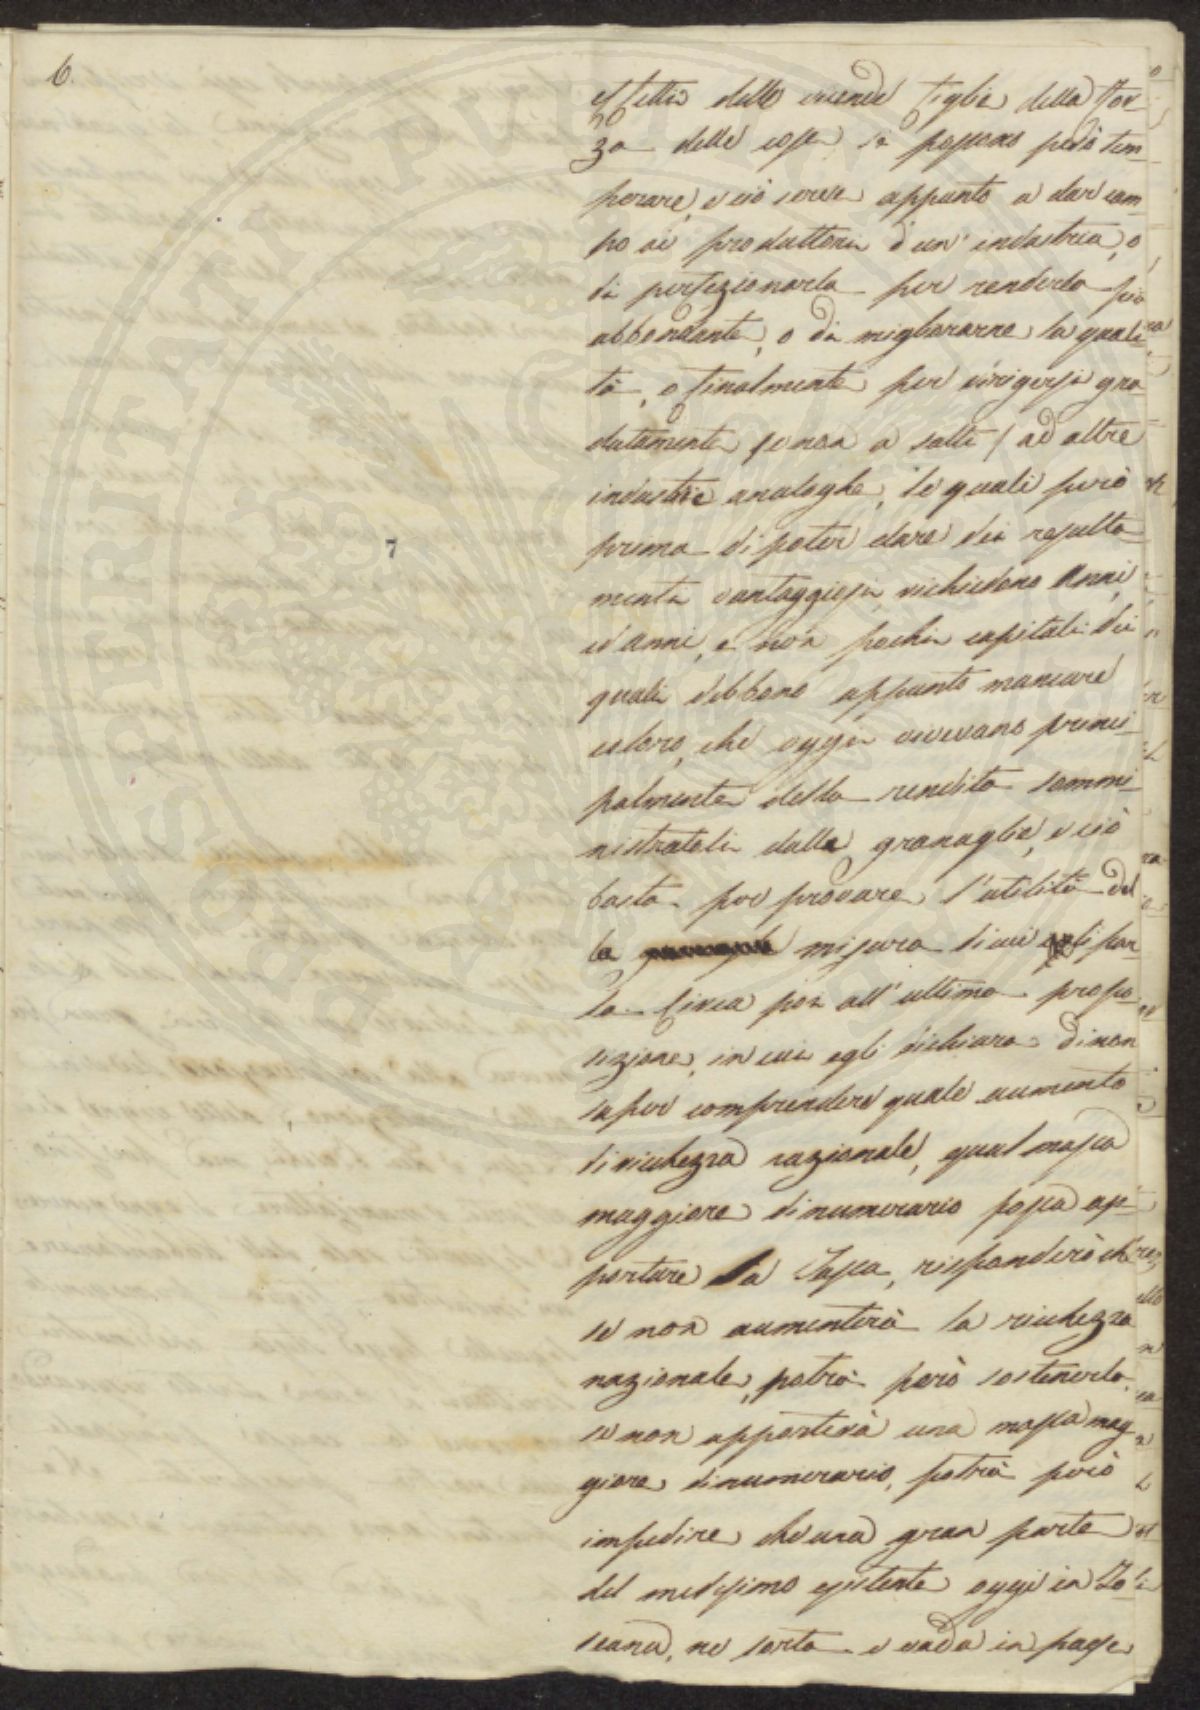 6.
effetti delle vicende figlie della for-
za delle cose si possono però tem-
perare, e ciò serve appunto a dar cam-
po ai produttori d'un'industria, o
di perfezionarla per renderla più
abbondante, o di migliorarne la quali-
tà, o finalmente per dirigersi gra-
datamente (e non a salti) ad altre
industrie analoghe, le quali però
prima di poter dare dei resulta-
menti vantaggiosi, richiedono anni,
ed anni, e non pochi capitali dei
quali debbono appunto mancare
coloro, che oggi vivevano princi-
palmente della rendita sommi-
nistrateli dalle granaglie, e ciò
basta per provare l'utilità del
la misura di cui egli par-
la. Circa poi all'ultima propo-
sizione, in cui egli dichiara di non
saper comprendere quale aumento
di richezza nazionale, qual massa
maggiore di numerario possa ap-
portare la Tassa, risponderò che
se non aumenterà la richezza
nazionale, potrà però sostenerla,
se non apporterà una massa mag-
giore di numerario, potrà però
impedire che una gran parte
del medesimo esistente oggi in To-
scana, ne sorta e vada in paesi
7
DOSPULIRITATI PUTI